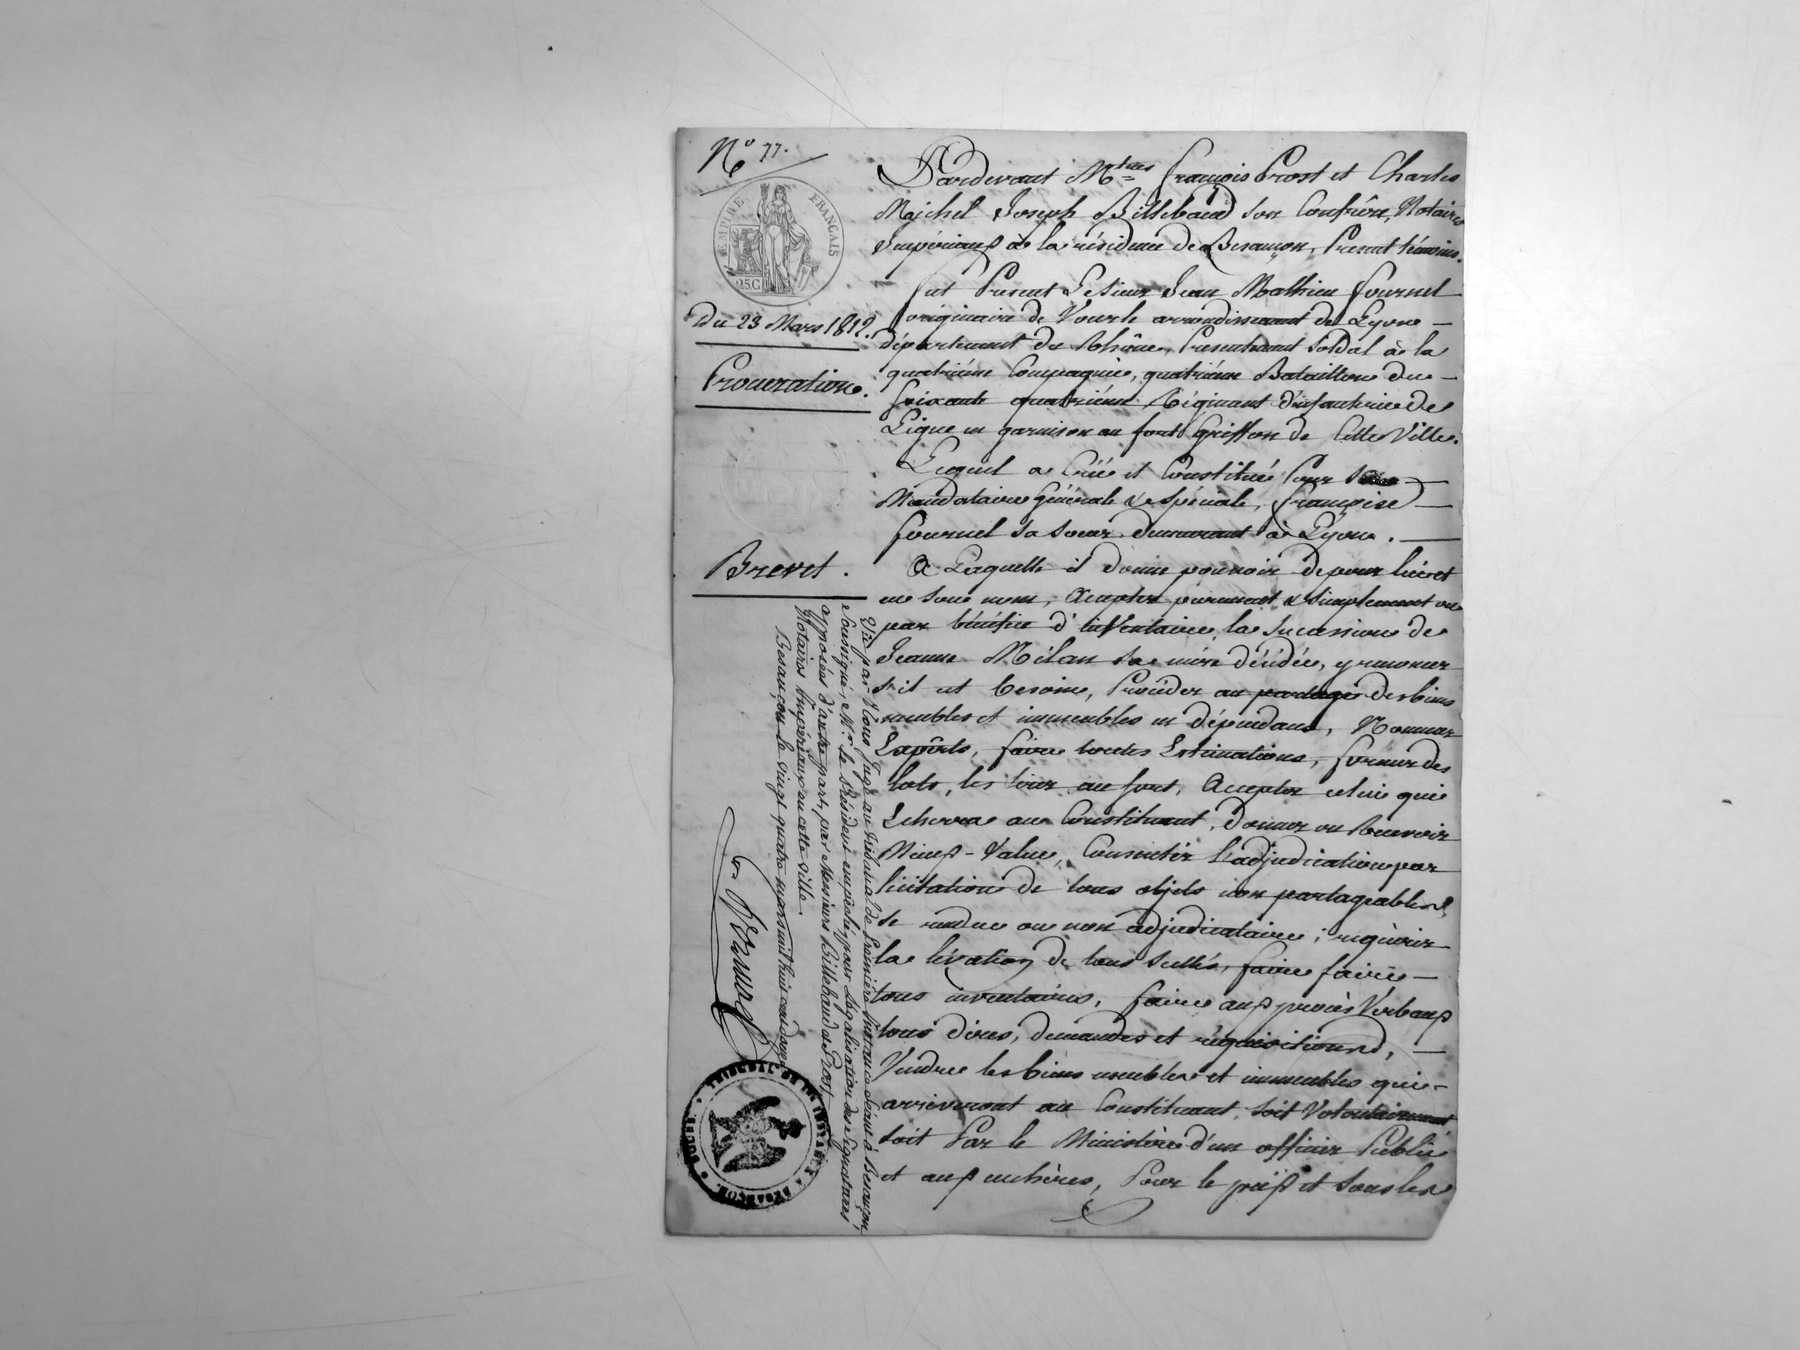 N.º 77.
EMPIRE FRANÇAIS
25.C
Du 23 Mars 1812.
Procuration.
Brevet.
Pardevant M.tres françois Prost et Charles
Majchel Joseph Billebaud son Confrère, Notaires
Impériaux à la résidence de Besançon, Present témoins.
fut Present Le Sieur Jean Mathieu fournel
originaire de Vourle arrondissement de Lyon
département du Rhône, Presentement Soldat à la
quatrième Compagnie, quatrième Bataillon du
soixante quatrième Régiment d'infanterie de
Ligne en garnison au fort Griffon de Cette Ville.
Lequel a Créé et Constitué Pour Sa
Mandataire Générale & Spéciale, françoise
fournel sa soeur demeurant à Lyon.
A Laquelle il donne pouvoir de pour lui et
en son nom, Accepter purement & Simplement ou
par bénéfice d'inventaire la Succession de
Jeanne Milan sa mère décédée, y renoncer
s'il est besoin, Procéder au partage des biens
meubles et immeubles en dépendans, Nommer
Experts, faire toutes Estimations, former des
lots, les tirer au sort, Accepter celui qui
Echerra au Constituant, donner ou Recevoir
Mieux-Value, Consentir l'adjudication par
licitation de tous objets non partageables,
se rendre ou non adjudicataire ; requérir
la levation de tous Scellés, faire faire
tous inventaires, faire aux procès Verbaux
tous dires, demandes et réquisitions,
Vendre les biens meubles et immeubles qui
arriveront au Constituant, soit Volontairement
soit Par le Ministère d'un officier Public
et aux enchères, Pour le prix et sous les
Vu par Nous Juge au tribunal de Première Instance Séant à Besançon,
Soussigné, M.r Le Président empêché, pour Légalisation des Signatures
apposées d'autre part, par Messieurs Billebaud et Prost
Notaires Impériaux en cette Ville.
Besançon le vingt quatre mars mil huit cent douze
TRIBUNAL DE 1.re INSTANCE A BESANÇON. DOUBS.